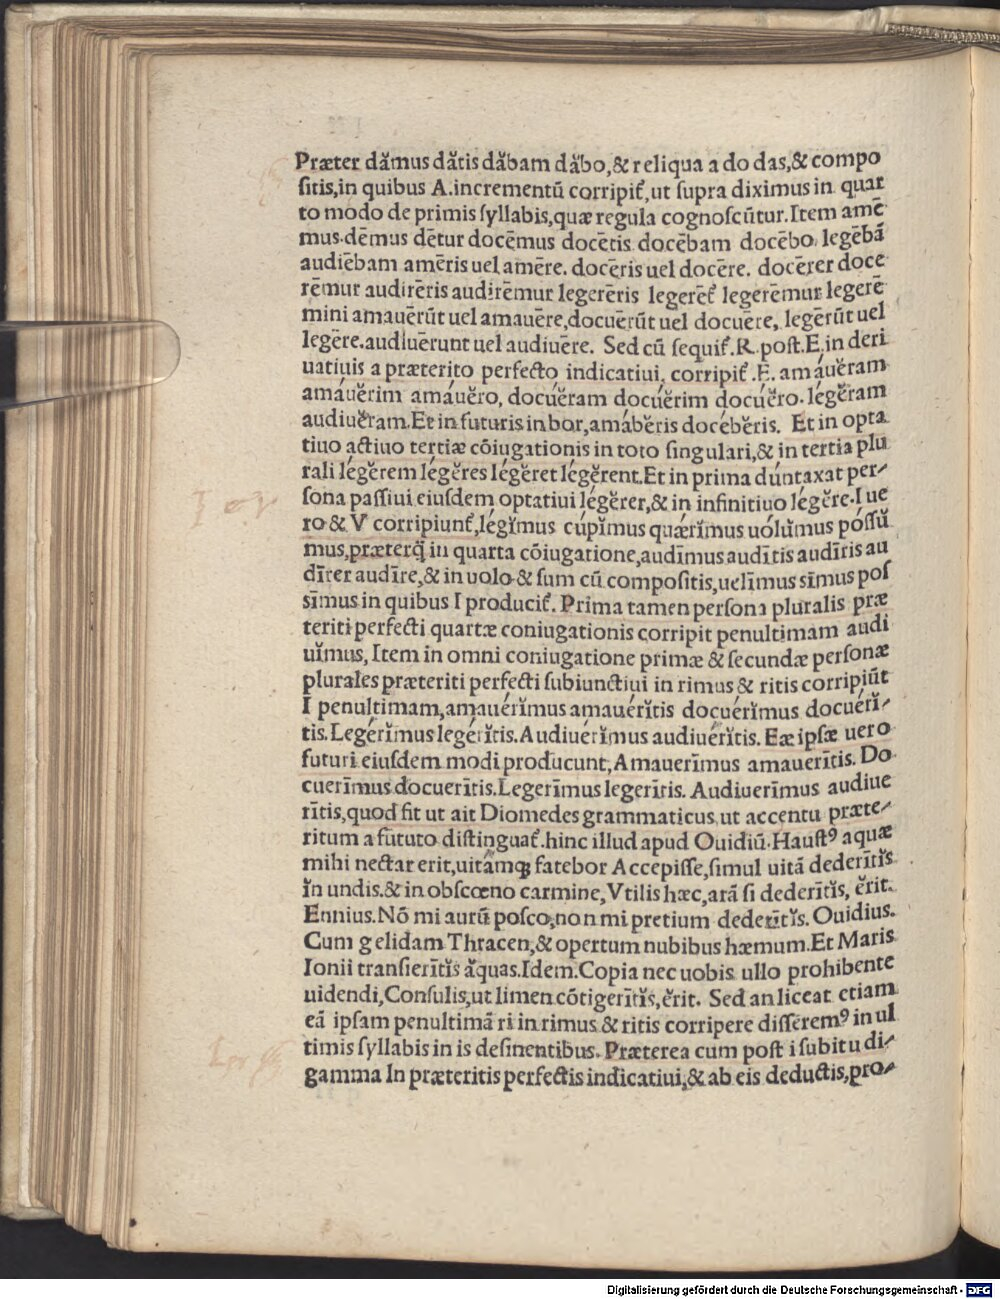 Præter dămus dătis dăbam dăbo,& reliqua a do das,& compo
sitis,in quibus A.incrementũ corripit᷑,ut supra diximus in quar
to modo de primis syllabis,quæ regula cognoscũtur.Item amē
mus.dēmus dētur docēmus docētis docēbam docēbo legēbã
audiēbam amēris uel amēre. docēris uel docēre. docērer doce
rēmur audirēris audirēmur legerēris legerēt᷑ legerēmur legerē
mini amauērũt uel amauēre,docuērũt uel docuēre, legērũt uel
legēre.audiuērunt uel audiuēre. Sed cũ sequit᷑.R.post.E.in deri
uatiuis a præterito perfecto indicatiui, corripit᷑.E. amáuĕram
amáuĕrim amáuĕro, docúĕram docúĕrim docúĕro.légĕram
audiuĕram.Et in futuris in bor,amábĕris docébĕris. Et in opta
tiuo actiuo tertiæ cõiugationis in toto singulari,& in tertia plu
rali légĕrem légĕres légĕret légĕrent.Et in prima dúntaxat per-
sona passiui eiusdem optatiui légĕrer,& in infinitiuo légĕre.I ue
ro & V corripiunt᷑,légĭmus cúpĭmus quǽrĭmus uólŭmus póssŭ
mus,præterq̃ in quarta cõiugatione,audīmus audītis audīris au
dīrer audīre,& in uolo & sum cũ compositis,uelīmus sīmus pos
sīmus in quibus I producit᷑. Prima tamen persona pluralis præ
teriti perfecti quartæ coniugationis corripit penultimam audi
uĭmus, Item in omni coniugatione primæ & secundæ personæ
plurales præteriti perfecti subiunctiui in rimus & ritis corripiũt
I penultimam,amauérĭmus amauérĭtis docuérĭmus docuérĭ-
tis.Legérĭmus legérĭtis.Audiuérĭmus audiuérĭtis. Eæ ipsæ uero
futuri eiusdem modi producunt,Amauerīmus amauerītis. Do
cuerīmus docuerītis.Legerīmus legerītis. Audiuerīmus audiue
rītis,quod fit ut ait Diomedes grammaticus,ut accentu præte-
ritum a fututo distinguat᷑.hinc illud apud Ouidiũ.Haustꝰ aquæ
mihi nectar erit,uitámqꝫ fatebor Accepisse,simul uitã dederītĭs
ĭn undis.& in obscœno carmine,Vtilis hæc,arã si dederītĭs, ĕrit.
Ennius.Nõ mi aurũ posco,non mi pretium dederītĭs. Ouidius.
Cum gelidam Thracen,& opertum nubibus hæmum.Et Maris
Ionii transierītĭs ăquas.Idem.Copia nec uobis ullo prohibente
uidendi,Consulis,ut limen cõtigerītĭs,ĕrit. Sed an liceat etiam
eã ipsam penultimã ri in rimus & ritis corripere disseremꝰ in ul
timis syllabis in is desinentibus. Præterea cum post i subit u di-
gamma In præteritis perfectis indicatiui,& ab eis deductis,pro-
Digitalisierung gefördert durch die Deutsche Forschungsgemeinschaft - DFG